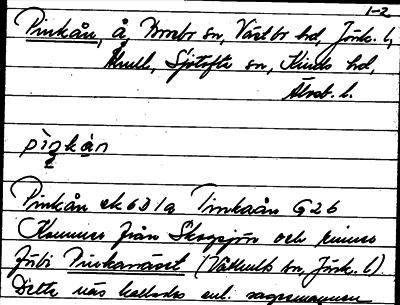 1-2
Pinkån, å, sn, Västbo hd, Jönk. l,
sn, Kinds hd,
Älvsb. l.
pìŋkån
Pinkån ek 6 D 1 a Tinkaån G 26
Kommer från Skogsjön och rinner
förbi Pinkanäset (Våthults sn, Jönk. l).
Detta näs kallades enl. sagesmannen